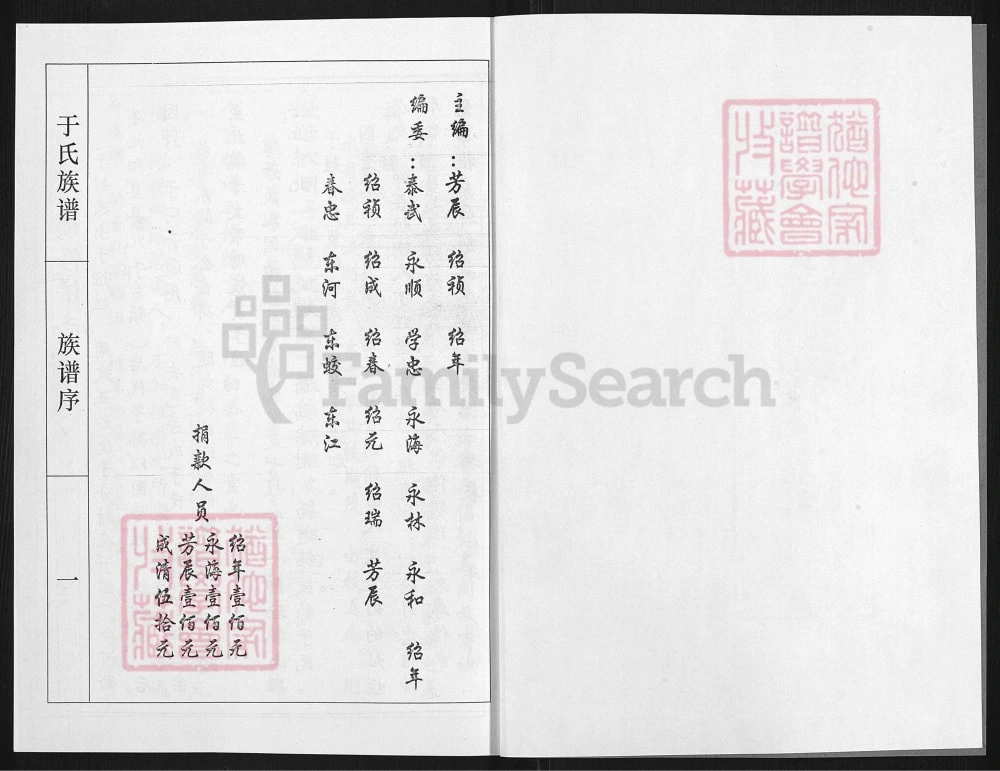 主编：芳辰 绍祯 绍年
编委：泰武 永顺 学忠 永海 永林 永和 绍年
绍祯 绍成 绍春 绍元 绍瑞 芳辰
春忠 东河 东蛟 东江
捐款人员
绍年壹佰元
永海壹佰元
芳辰壹佰元
成清伍拾元
于氏族谱
族谱序
一
猶他家
譜學會
收藏
猶他家
譜學會
收藏
FamilySearch